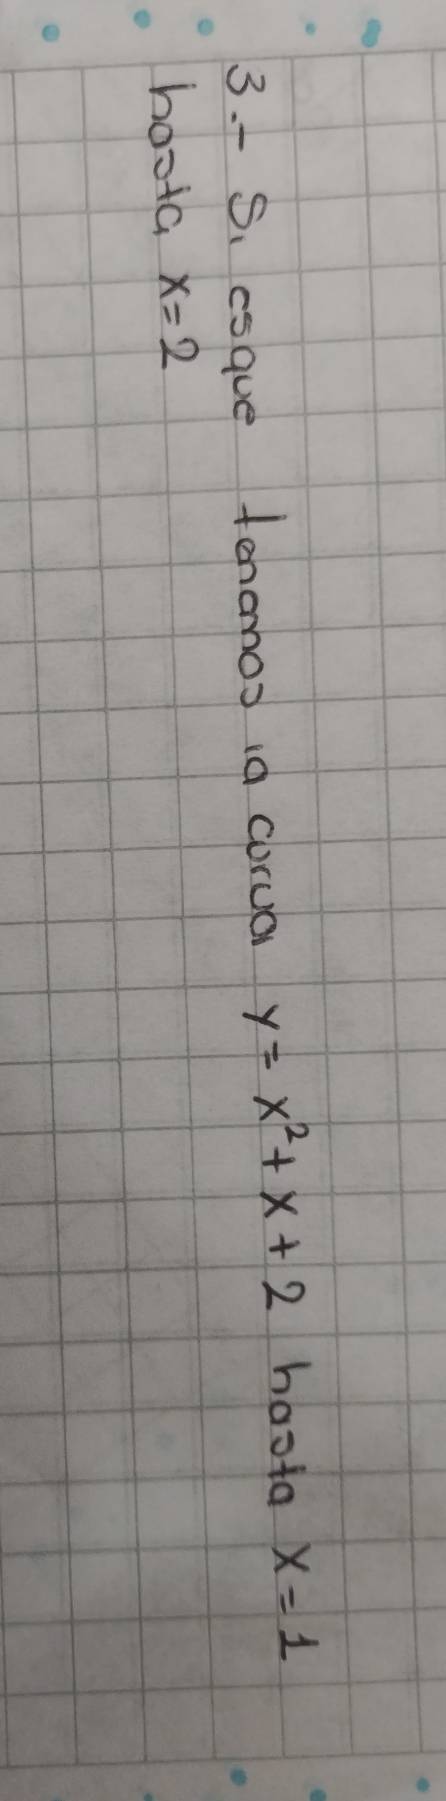 3.- Si esque tenemos la curva y = x² + x + 2 hasta x = 1
hasta x = 2